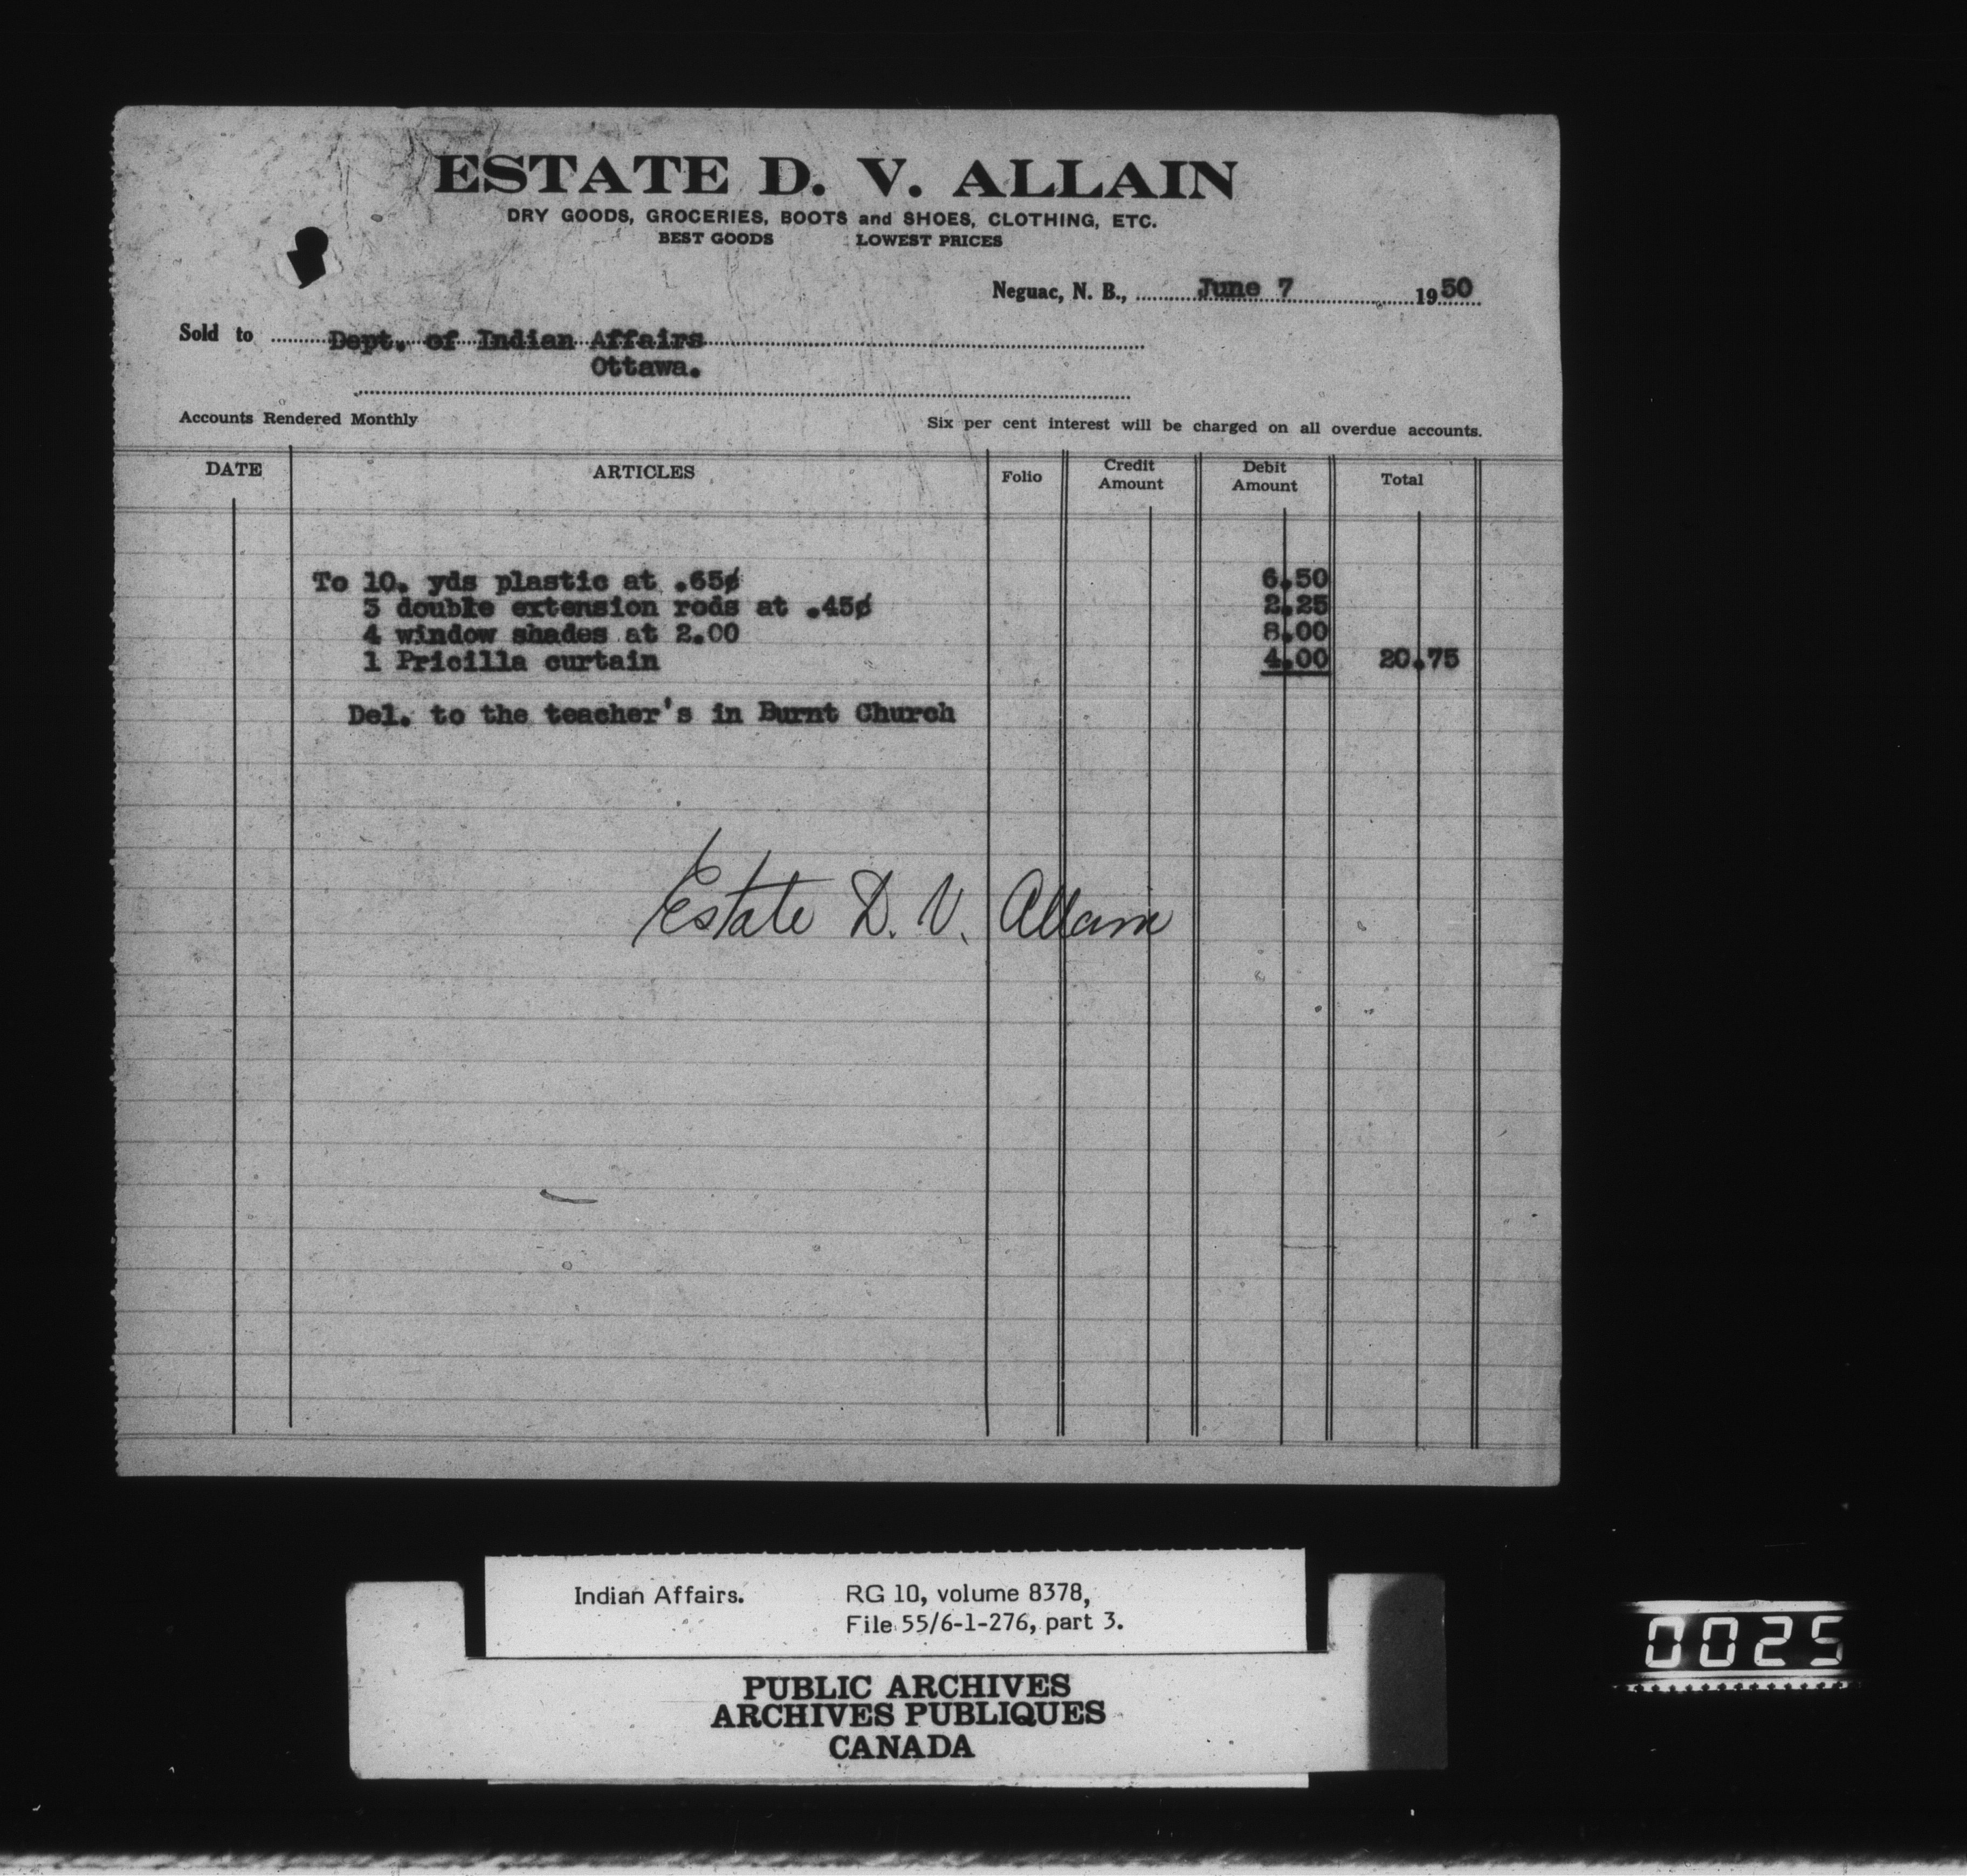 ESTATE D. V. ALLAIN
DRY GOODS, GROCERIES, BOOTS and SHOES, CLOTHING, ETC.
BEST GOODS LOWEST PRICES
Neguac, N. B., June 7 1950
Sold to Dept. of Indian Affairs
Ottawa.
Accounts Rendered Monthly Six per cent interest will be charged on all overdue accounts.
DATE ARTICLES Folio Credit Amount Debit Amount Total
To 10. yds plastic at .65¢ 6.50
5 double extension rods at .45¢ 2.25
4 window shades at 2.00 8.00
1 Pricilla curtain 4.00 20.75
Del. to the teacher's in Burnt Church
Estate D. V. Allain
Indian Affairs. RG 10, volume 8378,
File 55/6-1-276, part 3.
PUBLIC ARCHIVES
ARCHIVES PUBLIQUES
CANADA
0025